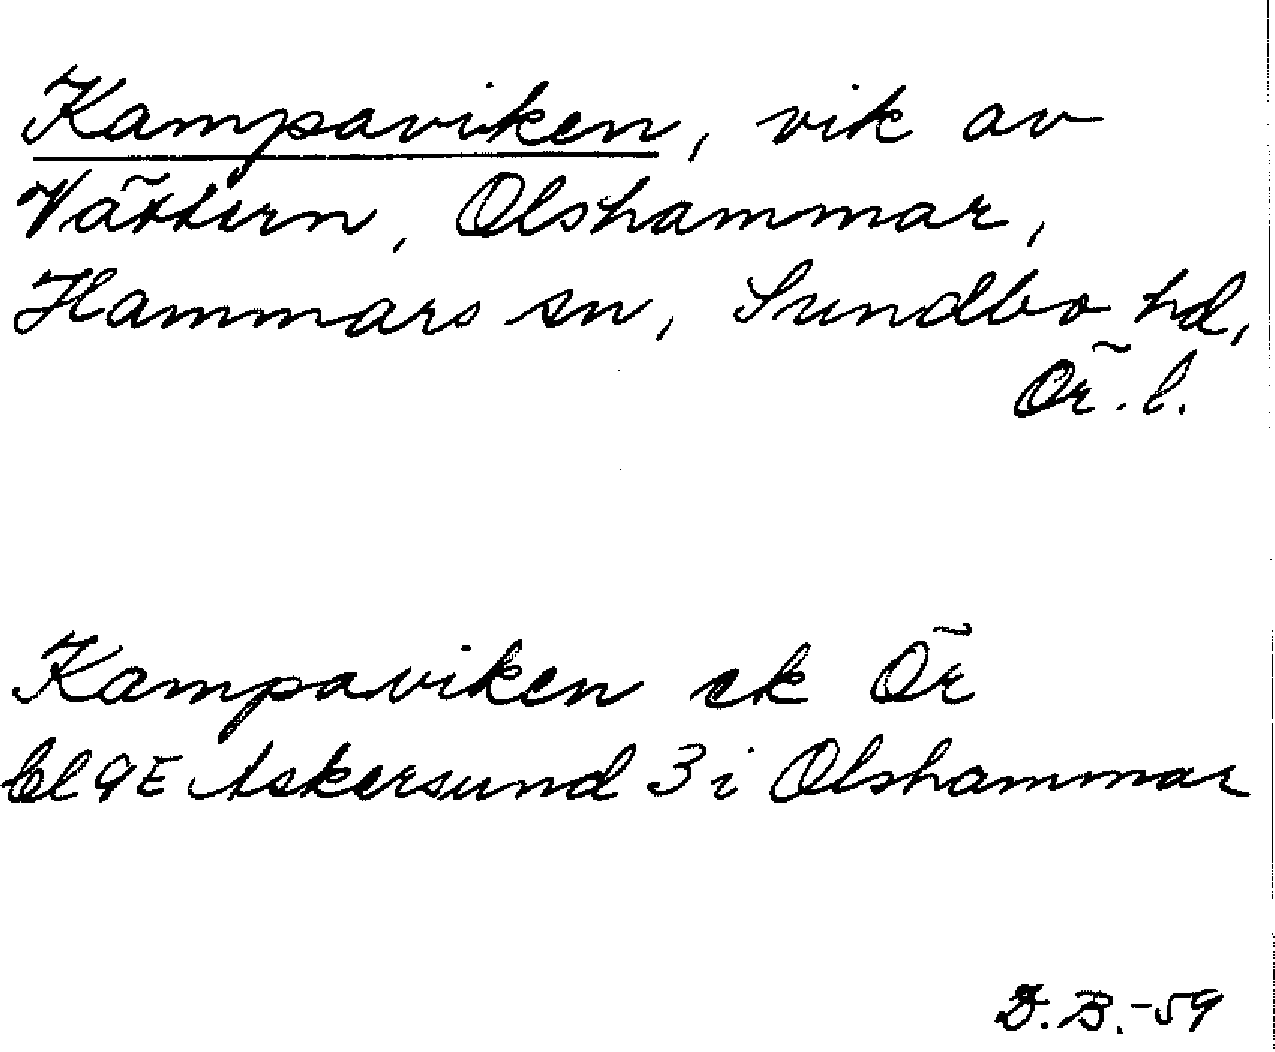 Kampaviken, vik av
Vättern, Olshammar,
Hammars sn, Sundbo hd,
Ör. l.
Kampaviken ek Ör
bl 9E Askersund 3 i Olshammar
D.B.-59